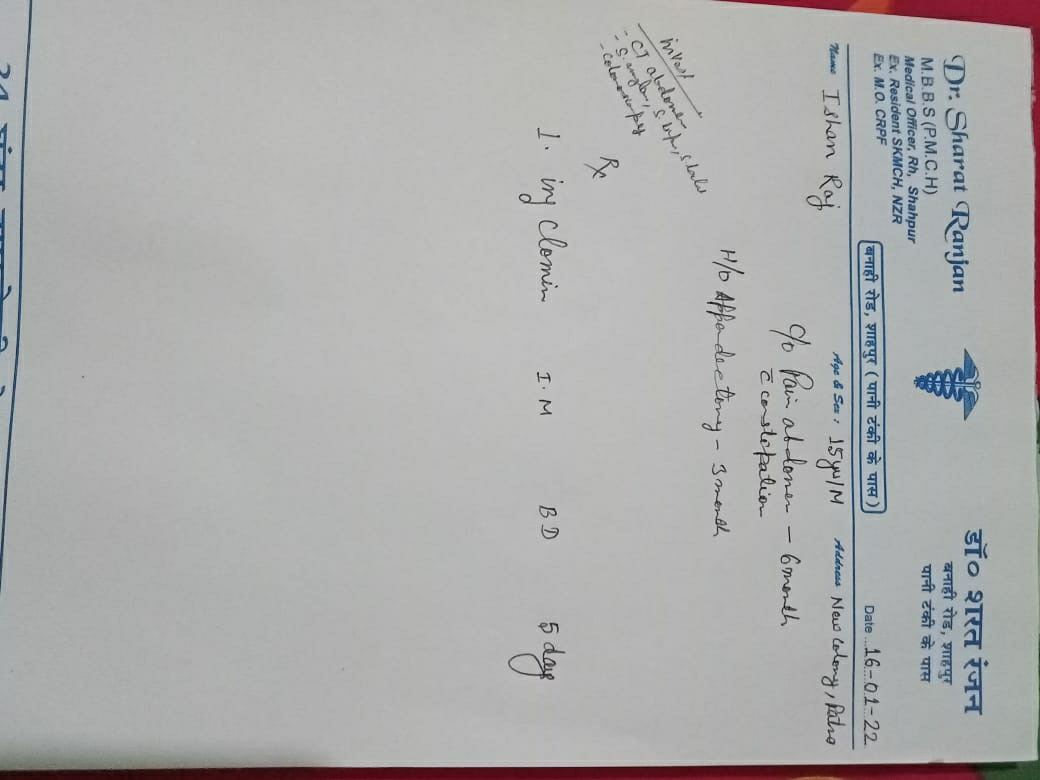 Dr. Sharat Ranjan
M.B.B.S (P.M.C.H)
Medical Officer, Rh, Shahpur
Ex. Resident SKMCH, NZR
Ex. M.O. CRPF
डॉ० शरत रंजन
बनाही रोड, शाहपुर
पानी टंकी के पास
बनाही रोड, शाहपुर ( पानी टंकी के पास )
Date 16-01-22
Name Ishan Raj Age & Sex : 15yr/M Address New Colony, Patna
c/o Pain abdomen - 6 month
c̄ constipation
H/o Appendectomy - 3 month
invest
- CT abdomen
- S. amylase, S. lip
- colonoscopy
Rx
1. inj Clomin I.M BD 5 days